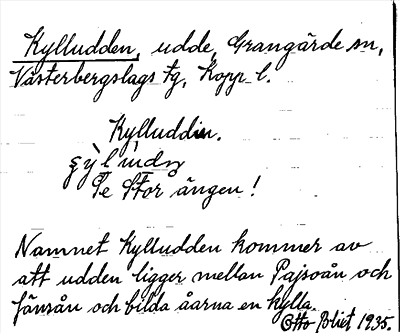 Kylludden, udde, Grangärde sn,
Västerbergslags tg, Kopp. l.
Kylluddin.
Se Stor ängen!
Namnet Kylludden kommer av
att udden ligger mellan Pajsoån och
Jänsån och bilda åarna en kylla.
Otto Blixt 1935.